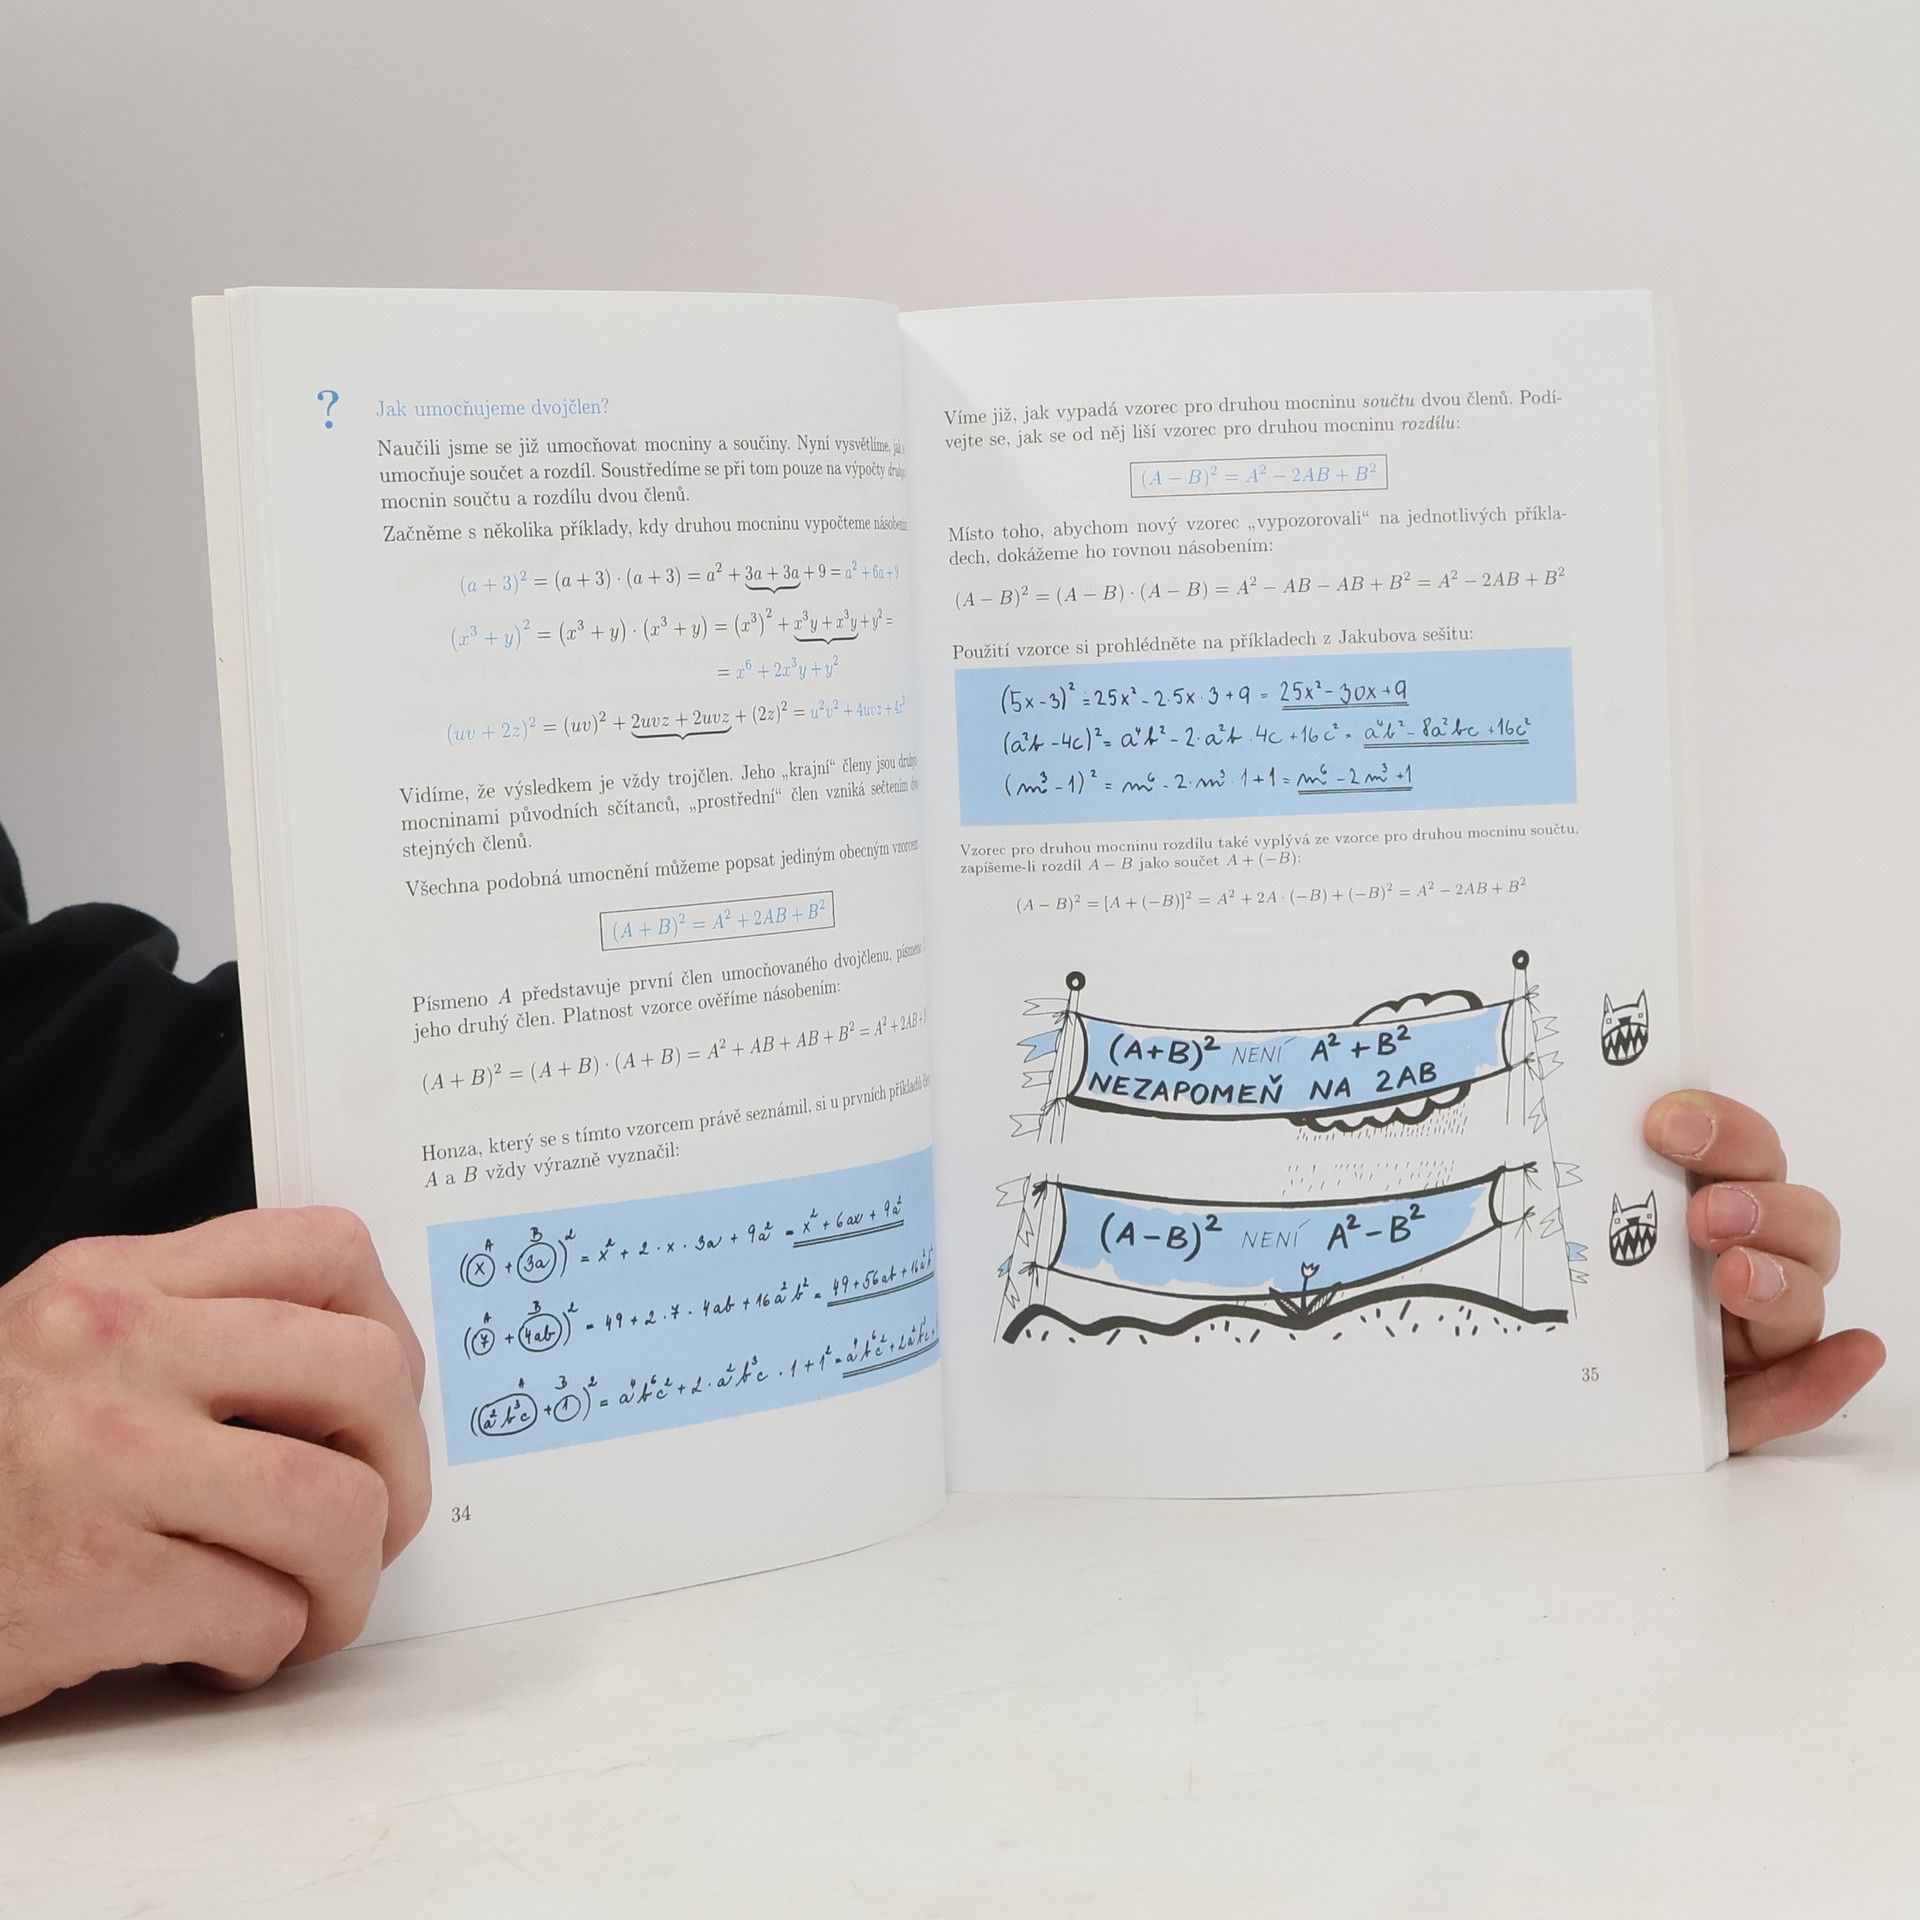 ?
Jak umocňujeme dvojčlen?
Naučili jsme se již umocňovat mocniny a součiny. Nyní vysvětlíme,
umocňuje součet a rozdíl. Soustředíme se při tom pouze na výpočty
mocnin součtu a rozdílu dvou členů.
Začněme s několika příklady, kdy druhou mocninu vypočteme
(a + 3)² = (a + 3) · (a + 3) = a² + 3a + 3a + 9 = a² + 6a + 9
(x³ + y)² = (x³ + y) · (x³ + y) = (x³)² + x³y + x³y + y² =
= x⁶ + 2x³y + y²
(uv + 2z)² = (uv)² + 2uvz + 2uvz + (2z)² = u²v² + 4uvz + 4z²
Vidíme, že výsledkem je vždy trojčlen. Jeho „krajní“ členy jsou
mocninami původních sčítanců, „prostřední“ člen vzniká sečtením
stejných členů.
Všechna podobná umocnění můžeme popsat jediným obecným vzorcem
(A + B)² = A² + 2AB + B²
Písmeno A představuje první člen umocňovaného dvojčlenu, písmeno
jeho druhý člen. Platnost vzorce ověříme násobením:
(A + B)² = (A + B) · (A + B) = A² + AB + AB + B² = A² + 2AB +
Honza, který se s tímto vzorcem právě seznámil, si u prvních příkladů
A a B vždy výrazně vyznačil:
A B
(x + 3a)² = x² + 2 · x · 3a + 9a² = x² + 6ax + 9a²
A B
(7 + 4ab)² = 49 + 2 · 7 · 4ab + 16a²b² = 49 + 56ab + 16a²b²
A B
(a²b³c + 1)² = a⁴b⁶c² + 2 · a²b³c · 1 + 1² = a⁴b⁶c² + 2a²b³c +
34
Víme již, jak vypadá vzorec pro druhou mocninu součtu dvou členů. Podí-
vejte se, jak se od něj liší vzorec pro druhou mocninu rozdílu:
(A − B)² = A² − 2AB + B²
Místo toho, abychom nový vzorec „vypozorovali“ na jednotlivých příkla-
dech, dokážeme ho rovnou násobením:
(A − B)² = (A − B) · (A − B) = A² − AB − AB + B² = A² − 2AB + B²
Použití vzorce si prohlédněte na příkladech z Jakubova sešitu:
(5x − 3)² = 25x² − 2 · 5x · 3 + 9 = 25x² − 30x + 9
(a²b − 4c)² = a⁴b² − 2 · a²b · 4c + 16c² = a⁴b² − 8a²bc + 16c²
(m³ − 1)² = m⁶ − 2 · m³ · 1 + 1 = m⁶ − 2m³ + 1
Vzorec pro druhou mocninu rozdílu také vyplývá ze vzorce pro druhou mocninu součtu,
zapíšeme-li rozdíl A − B jako součet A + (−B):
(A − B)² = [A + (−B)]² = A² + 2A · (−B) + (−B)² = A² − 2AB + B²
(A+B)² NENÍ A² + B²
NEZAPOMEŇ NA 2AB
(A−B)² NENÍ A² − B²
35